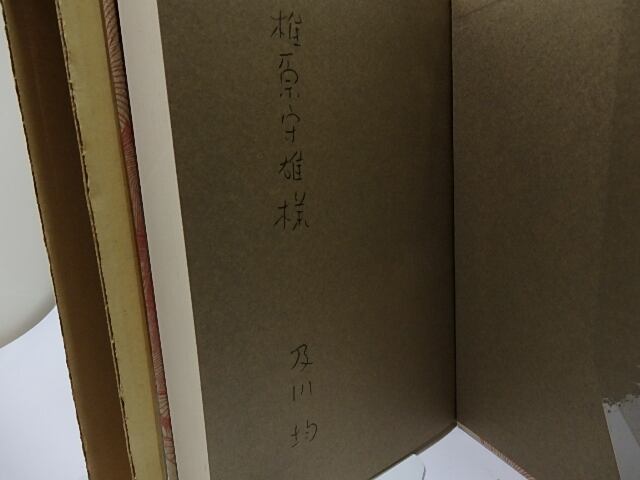 椎原守雄様
及川均